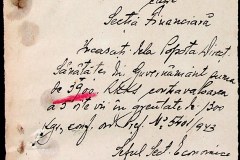 Secția Financiară
Încasat dela Popota Direct.
Sănătatei din Guvernământ suma
de 3900 contravaloarea
a 3 oite vii în greutate de 1300
Kgr., conf. ord. Pref. No. 5401/943
Șeful Sect. Economice